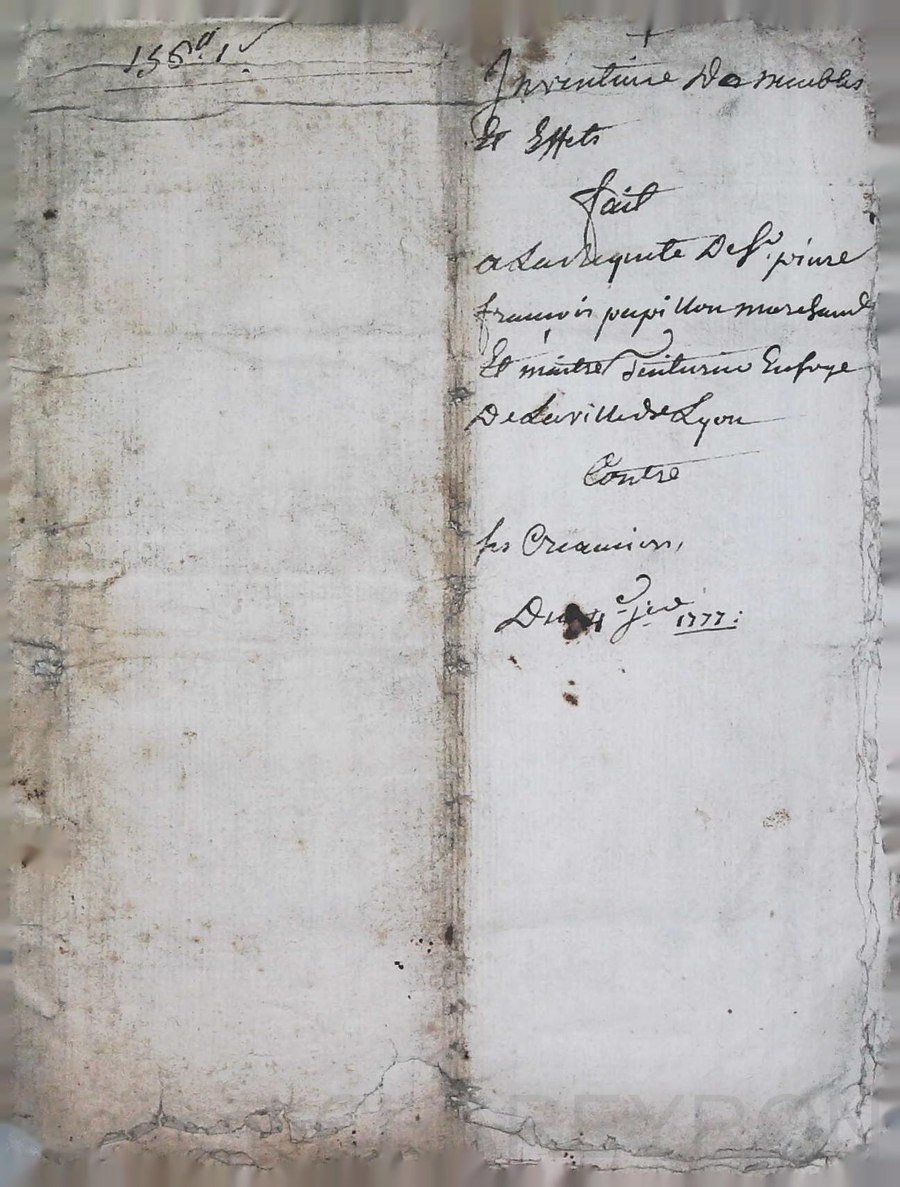 Inventaire De meubles
Et Effets
fait
a La Requete De Sr. pierre
françois papillon marchand
Et maitre Teinturier En soye
De La ville de Lyon
Contre
ses Creanciers,
Du 4e 1777: